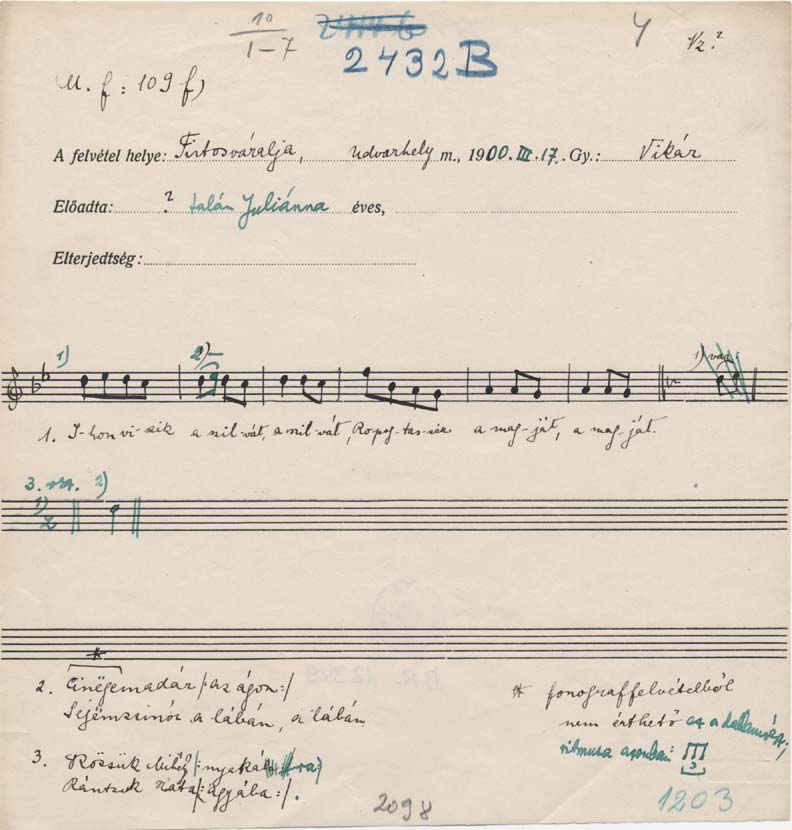 10
I–7
2432B
4
Vz?
M. f: 109 f)
A felvétel helye: Firtosváralja, Udvarhely m., 1900. III. 17. Gy.: Vikár
Előadta: ? talán Juliánna éves,
Elterjedtség:
1) 2) 1) var.
1. I-hon vi-szik a szil-vát, a szil-vát, Ropog-tas-sák a mag-ját, a mag-ját.
3. vsz. 2)
1)
*
2. Cinëgemadár /: az ágon :/
Sejëmzsinór a lábán, a lábán
3. Kössük Mihály /: nyakára :/
Rántsuk Kata /: ágyába :/.
* fonograffelvételből
nem érthető ez a
ritmusa azonban: 3
BR. 12349
2098
1203